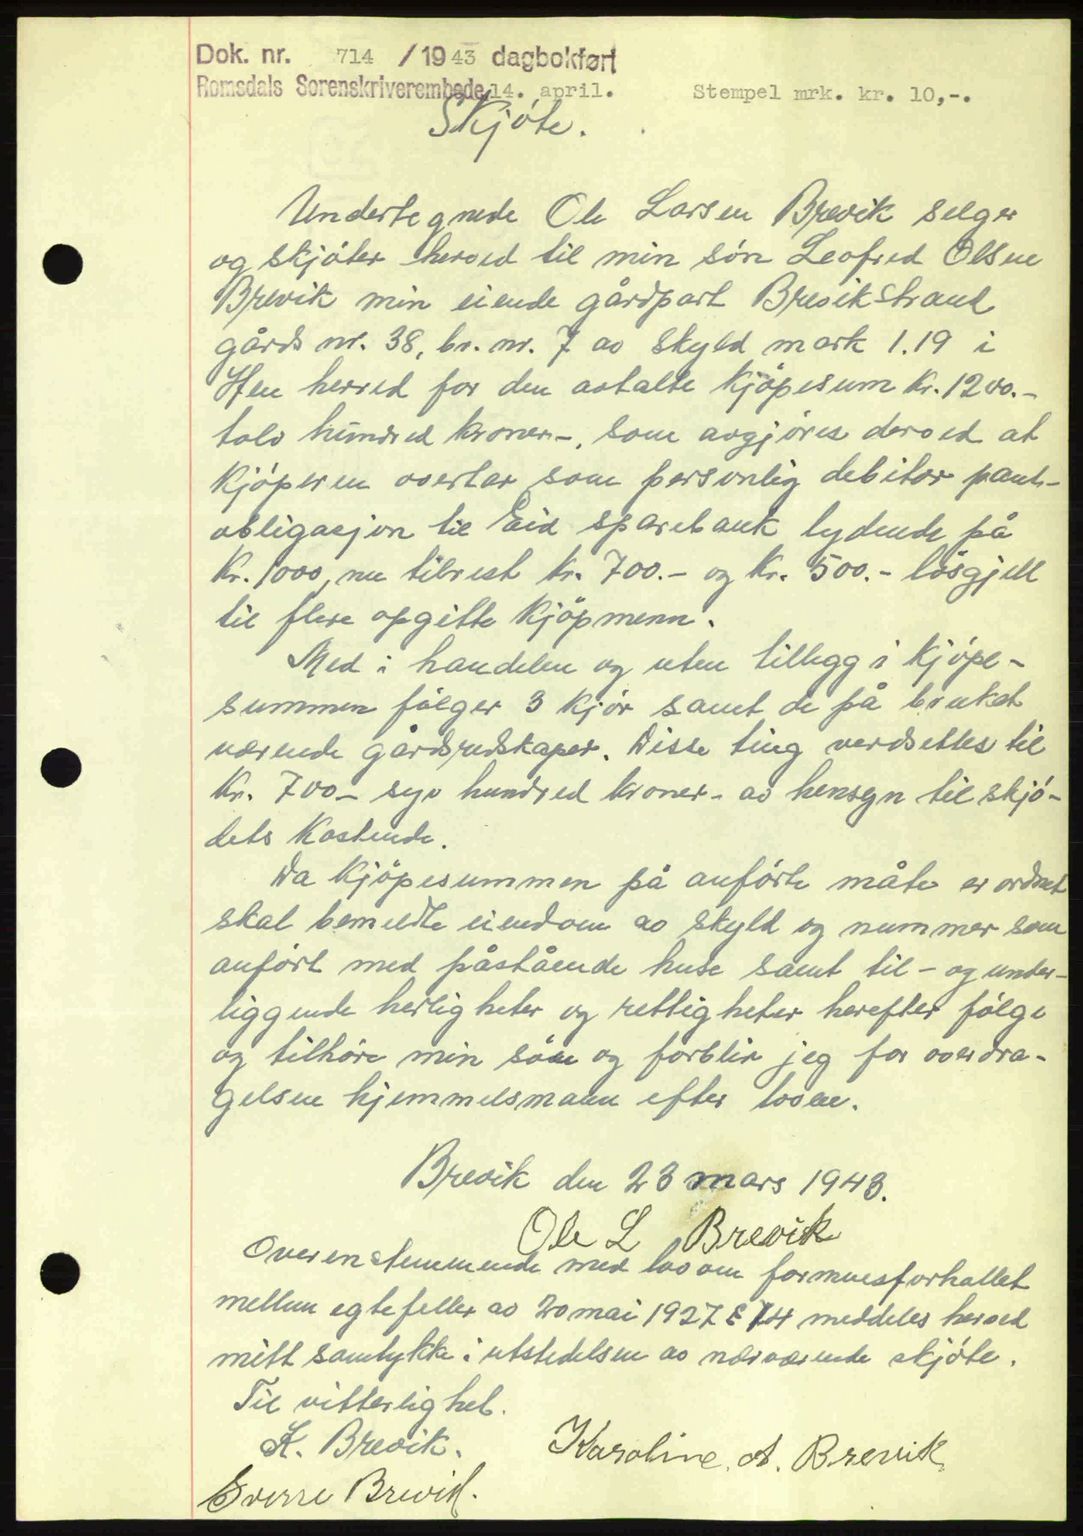 Dok. nr. 714 /1943 dagbokført
Romsdals Sorenskriverembede 14. april. Stempel mrk. kr. 10,-.
Skjøte.
Undertegnede Ole Larsen Brevik selger
og skjøter herved til min søn Leofred Olsen
Brevik min eiende gårdpart Brevikstrand
gårds nr. 38, br. nr. 7 av skyld mark 1.19 i
Hen herred for den avtalte kjøpesum kr. 1200.-
tolv hundred kroner-, som avgjøres derved at
kjøperen overtar som personlig debitor pant-
obligasjon til Eid sparebank lydende på
kr. 1000, nu tilrest kr. 700.- og kr. 500.- løsgjell
til flere opgitte kjøpmenn.
Med i handelen og uten tillegg i kjøpe-
summen følger 3 kjør samt de på bruket
værende gårdsredskaper. Disse ting verdsettes til
kr. 700- syv hundred kroner- av hensyn til skjø-
dets kostende.
Da kjøpesummen på anførte måte er ordnet
skal bemeldte eiendom av skyld og nummer som
anført med påstående huse samt til- og under-
liggende herligheter og rettigheter herefter følge
og tilhøre min søn og forblir jeg for overdra-
gelsen hjemmelsmann efter loven.
Brevik den 23 mars 1943.
Ole L Brevik
Overenstemmende med lov om formuesforhallet
mellun egtefeller av 20 mai 1927 § 14 meddeles herved
mitt samtykke i utstedelsen av nærværende skjøte.
Til vitterlighet.
K. Brevik. Karoline A. Brevik
Sverre Brevik.